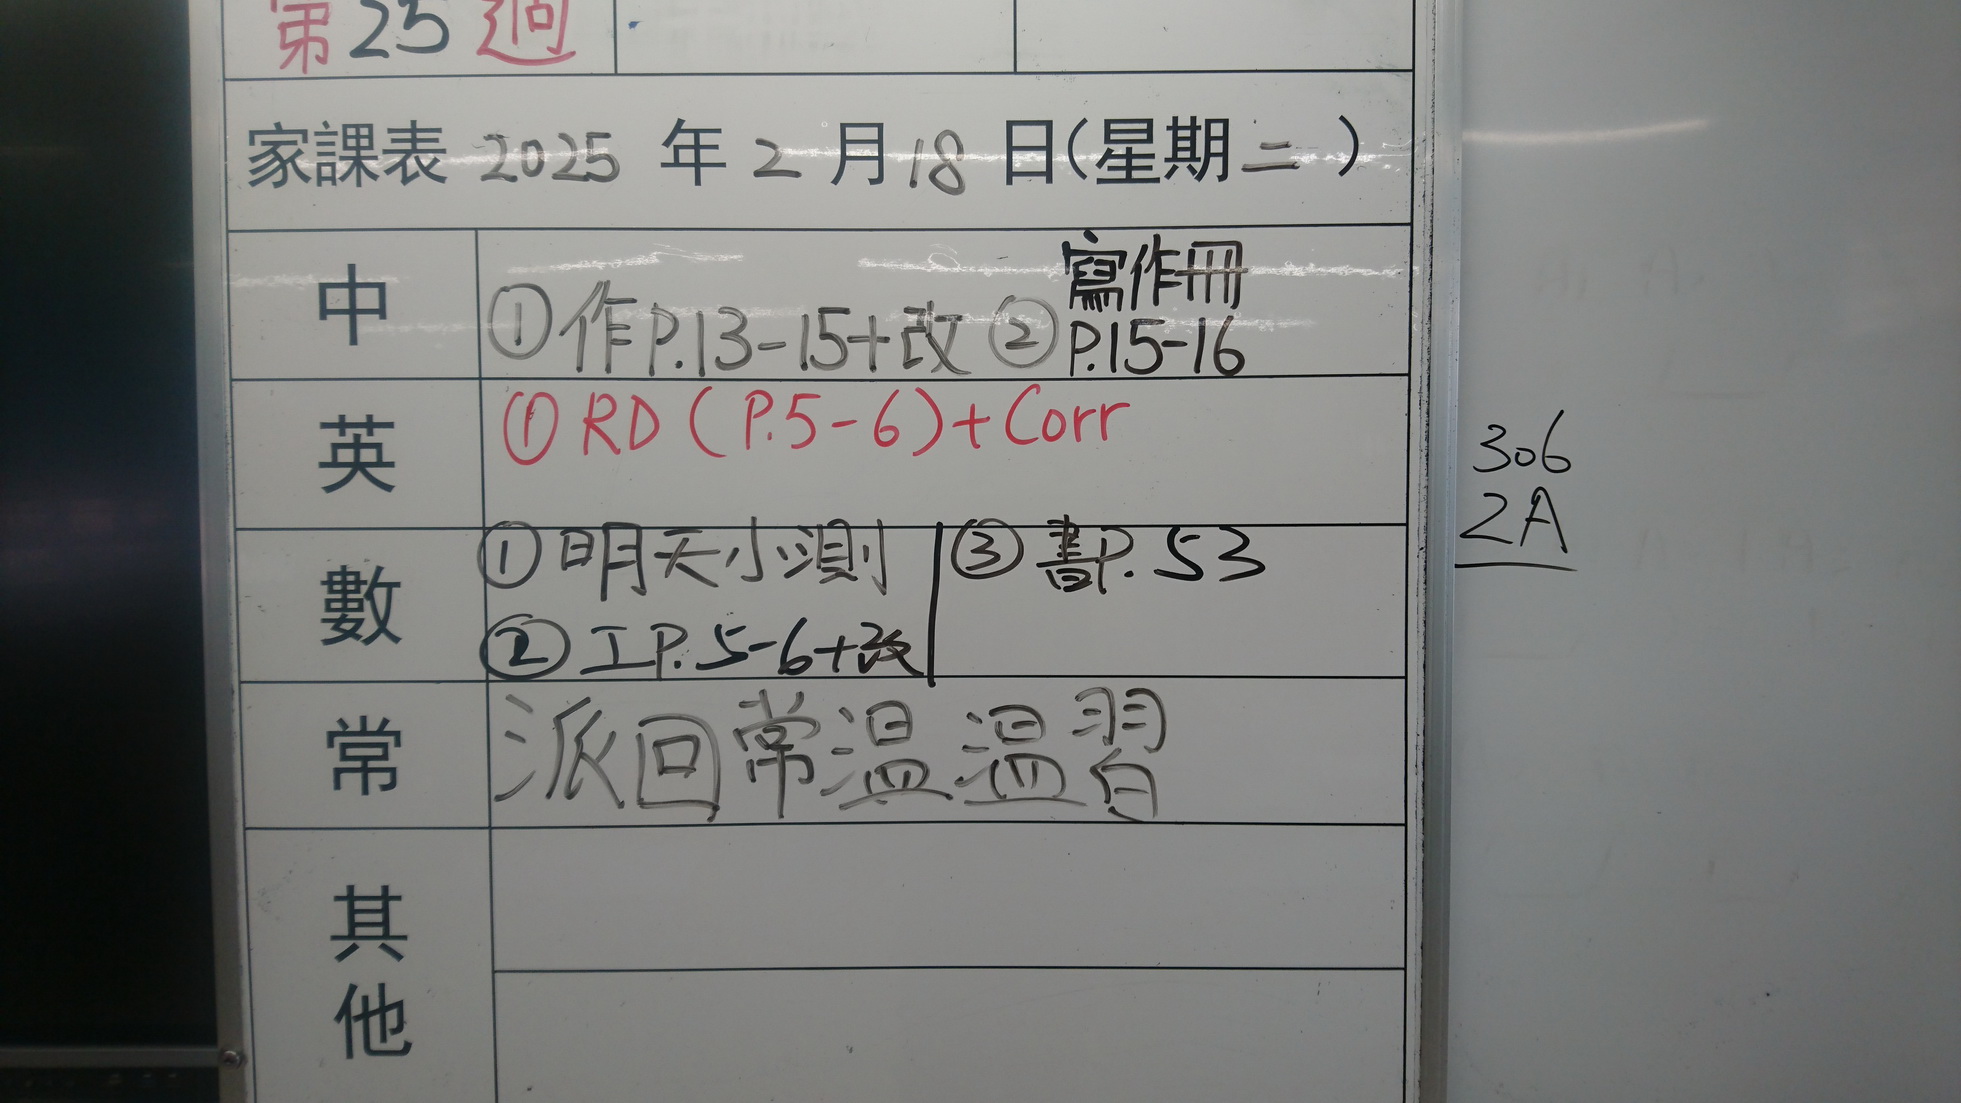 第25週
家課表 2025 年 2 月 18 日(星期二)
中
①作P.13-15+改 ②寫作冊
P.15-16
英
①RD (P.5-6)+Corr
數
①明天小測
②工P.5-6+改
③書P.53
常
派回常溫溫習
其他
306
2A